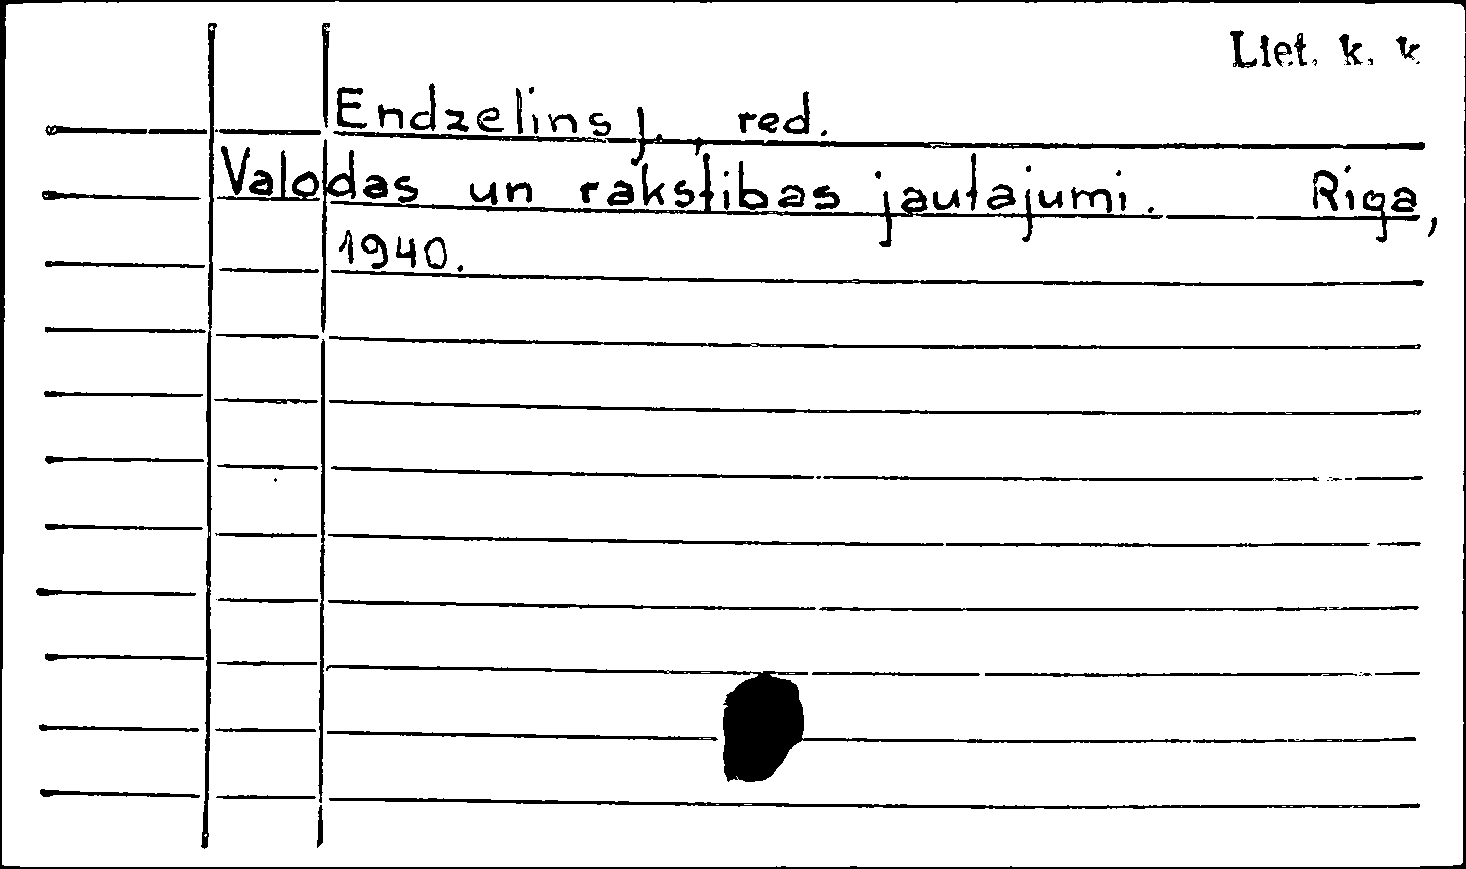 Liet. k. k
Endzelins J., red.
Valodas un rakstibas jautajumi. Riga,
1940.